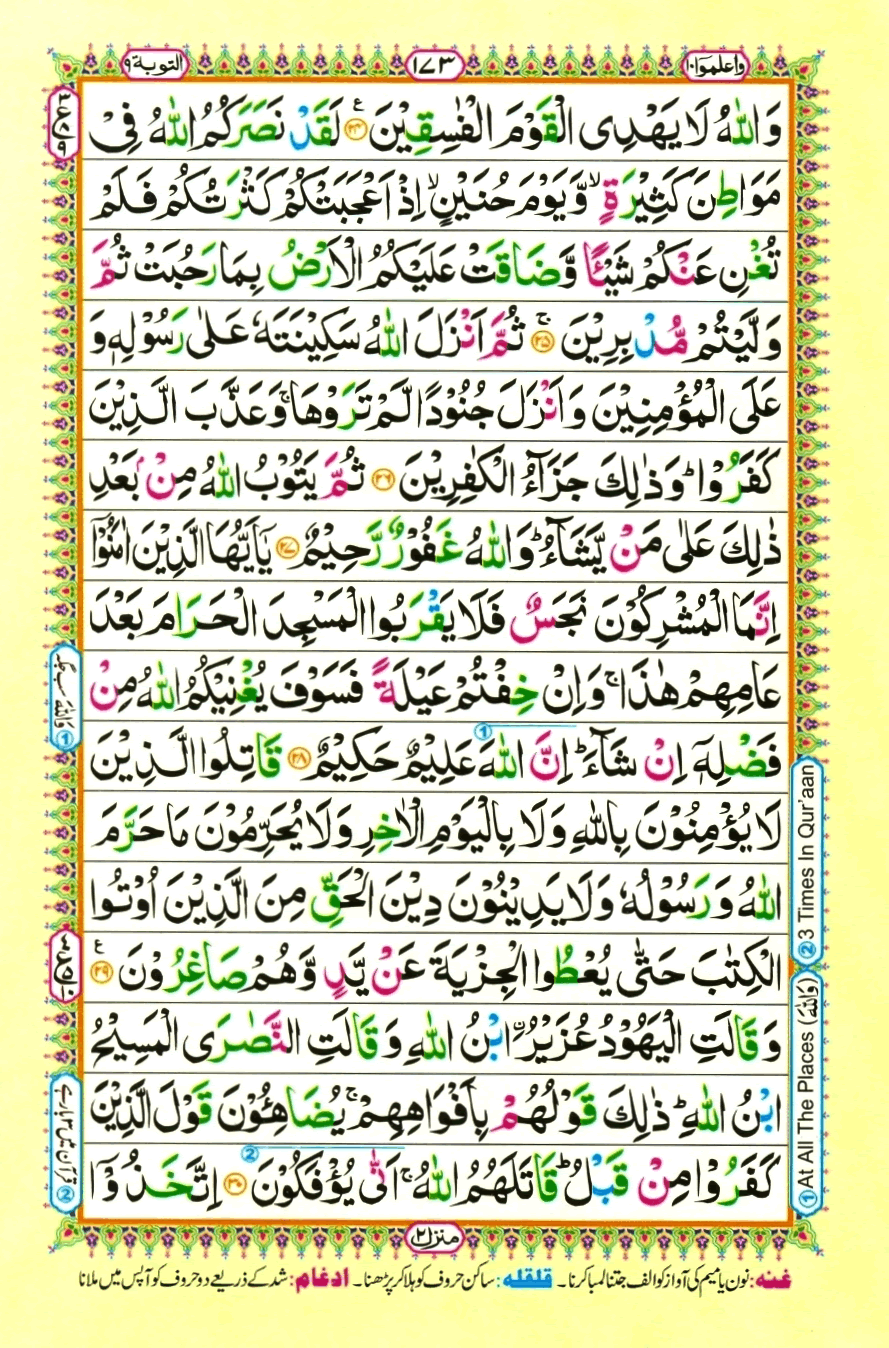 واعلموا ١٠
١٧٣
التوبة ٩
وَاللّٰهُ لَا يَهْدِى الْقَوْمَ الْفٰسِقِيْنَ ﴿٢٤﴾ لَقَدْ نَصَرَكُمُ اللّٰهُ فِىْ
مَوَاطِنَ كَثِيْرَةٍ ۙ وَّيَوْمَ حُنَيْنٍ ۙ اِذْ اَعْجَبَتْكُمْ كَثْرَتُكُمْ فَلَمْ
تُغْنِ عَنْكُمْ شَيْـًٔا وَّضَاقَتْ عَلَيْكُمُ الْاَرْضُ بِمَا رَحُبَتْ ثُمَّ
وَلَّيْتُمْ مُّدْبِرِيْنَ ۚ ﴿٢٥﴾ ثُمَّ اَنْزَلَ اللّٰهُ سَكِيْنَتَهٗ عَلٰى رَسُوْلِهٖ وَ
عَلَى الْمُؤْمِنِيْنَ وَاَنْزَلَ جُنُوْدًا لَّمْ تَرَوْهَا ۚ وَعَذَّبَ الَّذِيْنَ
كَفَرُوْا ؕ وَذٰلِكَ جَزَآءُ الْكٰفِرِيْنَ ﴿٢٦﴾ ثُمَّ يَتُوْبُ اللّٰهُ مِنْۢ بَعْدِ
ذٰلِكَ عَلٰى مَنْ يَّشَآءُ ؕ وَاللّٰهُ غَفُوْرٌ رَّحِيْمٌ ﴿٢٧﴾ يٰۤاَيُّهَا الَّذِيْنَ اٰمَنُوْۤا
اِنَّمَا الْمُشْرِكُوْنَ نَجَسٌ فَلَا يَقْرَبُوا الْمَسْجِدَ الْحَرَامَ بَعْدَ
عَامِهِمْ هٰذَا ۚ وَاِنْ خِفْتُمْ عَيْلَةً فَسَوْفَ يُغْنِيْكُمُ اللّٰهُ مِنْ
فَضْلِهٖۤ اِنْ شَآءَ ؕ اِنَّ اللّٰهَ عَلِيْمٌ حَكِيْمٌ ﴿٢٨﴾ قَاتِلُوا الَّذِيْنَ
لَا يُؤْمِنُوْنَ بِاللّٰهِ وَلَا بِالْيَوْمِ الْاٰخِرِ وَلَا يُحَرِّمُوْنَ مَا حَرَّمَ
اللّٰهُ وَرَسُوْلُهٗ وَلَا يَدِيْنُوْنَ دِيْنَ الْحَقِّ مِنَ الَّذِيْنَ اُوْتُوا
الْكِتٰبَ حَتّٰى يُعْطُوا الْجِزْيَةَ عَنْ يَّدٍ وَّهُمْ صَاغِرُوْنَ ﴿٢٩﴾
وَقَالَتِ الْيَهُوْدُ عُزَيْرُ ۨ ابْنُ اللّٰهِ وَقَالَتِ النَّصٰرَى الْمَسِيْحُ
ابْنُ اللّٰهِ ؕ ذٰلِكَ قَوْلُهُمْ بِاَفْوَاهِهِمْ ۚ يُضَاهِئُوْنَ قَوْلَ الَّذِيْنَ
كَفَرُوْا مِنْ قَبْلُ ؕ قَاتَلَهُمُ اللّٰهُ ۚ اَنّٰى يُؤْفَكُوْنَ ﴿٣٠﴾ اِتَّخَذُوْۤا
① وَاللّٰهُ سب جگہ
② قرآن میں ۳ بار ہے
② 3 Times In Qur'aan
① At All The Places (وَاللّٰهُ)
منزل ٢
غنہ: نون یا میم کی آواز کو الف جتنا لمبا کرنا ۔ قلقلہ: ساکن حروف کو ہلا کر پڑھنا ۔ ادغام: شد کے ذریعے دو حروف کو آپس میں ملانا